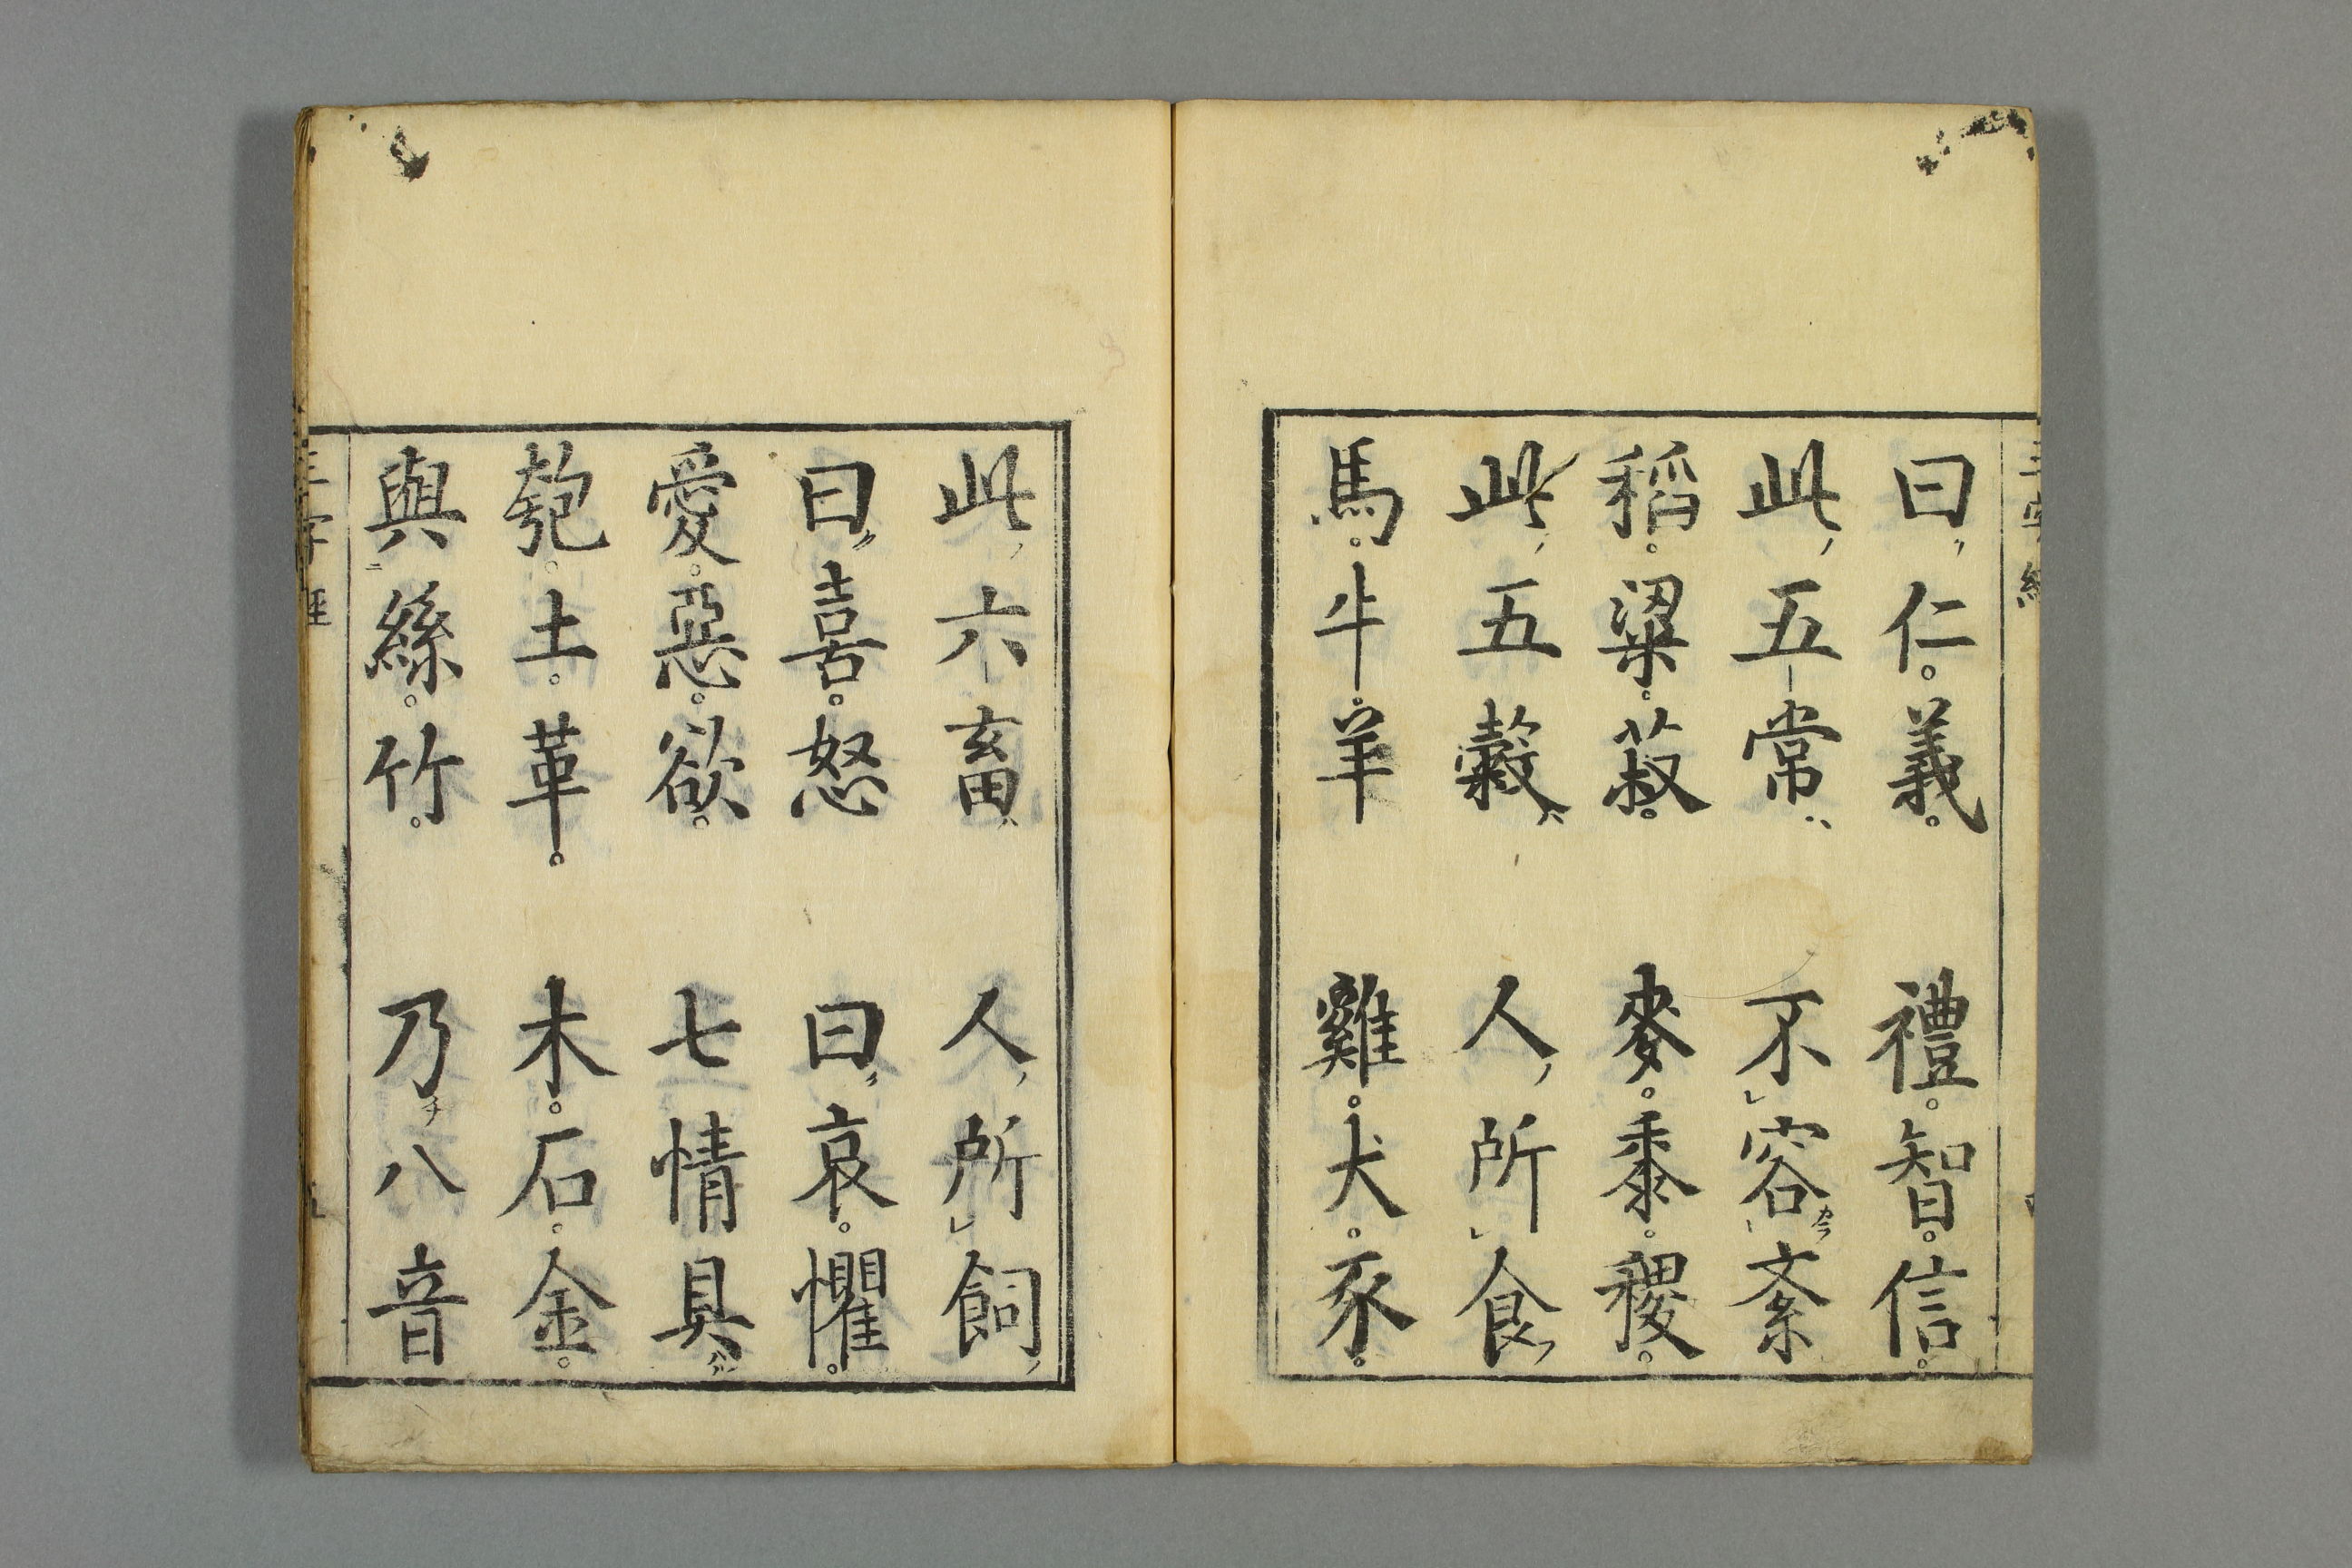 三字經
曰仁。義。禮。智。信。
此五常不容紊
稻。粱。菽。麥。黍。稷。
此五穀人所食
馬。牛。羊雞。犬。豕。
此六畜人所飼
曰喜。怒曰哀。懼。
愛。惡。欲。七情具
匏。土。革。木。石。金。
與絲。竹。乃八音
三字經